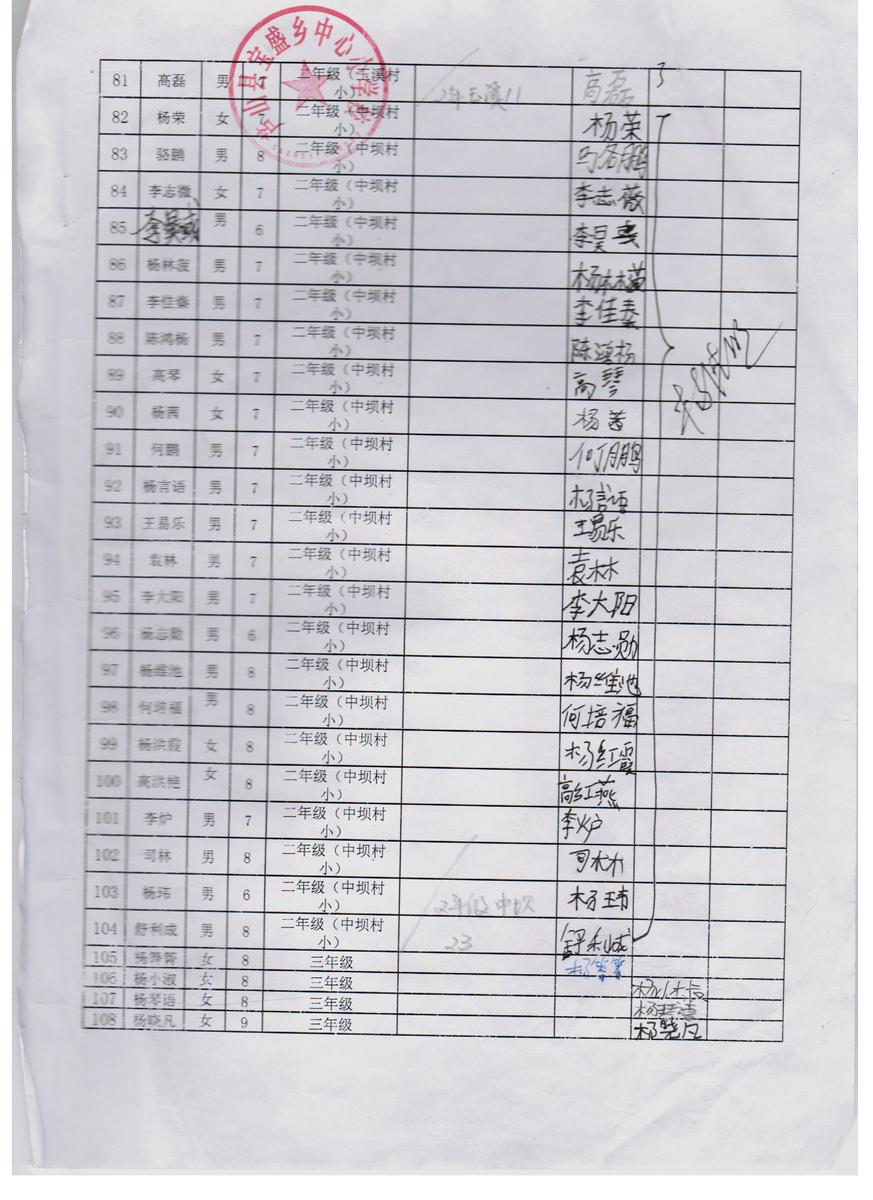 芦山县宝盛乡中心小学校
81 高磊 男 7 二年级（玉溪村小） 2年玉溪11 高磊
82 杨荣 女 7 二年级（中坝村小） 杨荣
83 骆鹏 男 8 二年级（中坝村小） 骆鹏
84 李志薇 女 7 二年级（中坝村小） 李志薇
85 男 6 二年级（中坝村小） 李昊
86 杨林 男 7 二年级（中坝村小） 杨林
87 李佳 男 7 二年级（中坝村小） 李佳
88 陈鸿杨 男 7 二年级（中坝村小） 陈鸿杨
89 高琴 女 7 二年级（中坝村小） 高琴
90 杨茜 女 7 二年级（中坝村小） 杨茜
91 何鹏 男 7 二年级（中坝村小） 何鹏
92 杨言语 男 7 二年级（中坝村小） 杨言语
93 王易乐 男 7 二年级（中坝村小） 王易乐
94 袁林 男 7 二年级（中坝村小） 袁林
95 李大阳 男 7 二年级（中坝村小） 李大阳
96 杨志勋 男 6 二年级（中坝村小） 杨志勋
97 杨维池 男 8 二年级（中坝村小） 杨维池
98 何培福 男 8 二年级（中坝村小） 何培福
99 杨洪霞 女 8 二年级（中坝村小） 杨红霞
100 高洪艳 女 8 二年级（中坝村小） 高红燕
101 李炉 男 7 二年级（中坝村小） 李炉
102 司林 男 8 二年级（中坝村小） 司林
103 杨玮 男 6 二年级（中坝村小） 2年级中坝 杨玮
104 舒利成 男 8 二年级（中坝村小） 23 舒利成
105 女 8 三年级 杨箐箐
106 杨小淑 女 8 三年级 杨小淑
107 杨琴语 女 8 三年级 杨琴语
108 杨晓凡 女 9 三年级 杨晓凡